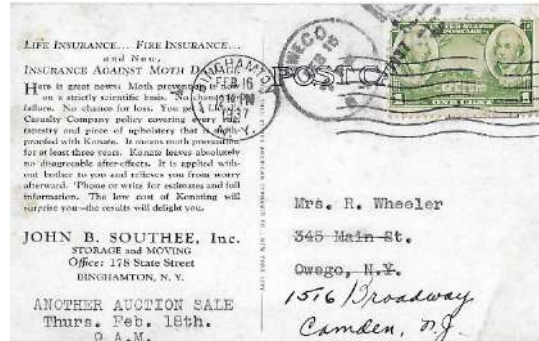 LIFE INSURANCE... FIRE INSURANCE...
and Now,
INSURANCE AGAINST MOTH
Here is great news: Moth prevention is now
on a strictly scientific basis. No
failure. No chance for loss. You
Casualty Company policy covering every rug,
tapestry and piece of upholstery that is moth-
proofed with Konate. It means moth prevention
for at least three years. Konate leaves absolutely
no disagreeable after-effects. It is applied with-
out bother to you and relieves you from worry
afterward. 'Phone or write for estimates and full
information. The low cost of Konating will
surprise you—the results will delight you.
JOHN B. SOUTHEE, Inc.
STORAGE and MOVING
Office: 178 State Street
BINGHAMTON, N. Y.
ANOTHER AUCTION SALE
Thurs. Feb. 18th.
9 A.M.
BINGHAMTON
FEB 16
1937
N. Y.
POST CA
UNITED STATES
POSTAGE
ONE CENT
Mrs. R. Wheeler
345 Main St.
Owego, N.Y.
1516 Broadway
Camden, N.J.